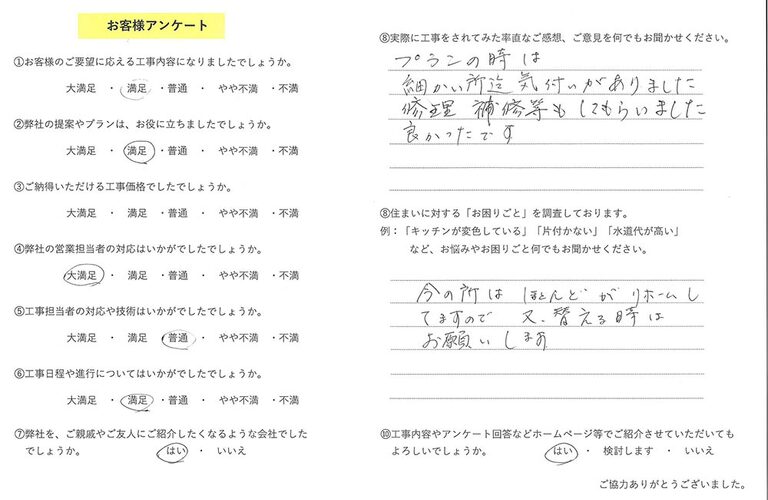 お客様アンケート
①お客様のご要望に応える工事内容になりましたでしょうか。
大満足 ・ 満足 ・普通 ・ やや不満 ・不満
②弊社の提案やプランは、お役に立ちましたでしょうか。
大満足 ・ 満足 ・普通 ・ やや不満 ・不満
③ご納得いただける工事価格でしたでしょうか。
大満足 ・ 満足 ・普通 ・ やや不満 ・不満
④弊社の営業担当者の対応はいかがでしたでしょうか。
大満足 ・ 満足 ・普通 ・ やや不満 ・不満
⑤工事担当者の対応や技術はいかがでしたでしょうか。
大満足 ・ 満足 ・普通 ・ やや不満 ・不満
⑥工事日程や進行についてはいかがでしたでしょうか。
大満足 ・ 満足 ・普通 ・ やや不満 ・不満
⑦弊社を、ご親戚やご友人にご紹介したくなるような会社でした
でしょうか。 はい ・ いいえ
⑧実際に工事をされてみた率直なご感想、ご意見を何でもお聞かせください。
プランの時は
細かい所迄 気付いがありました
修理 補修等もしてもらいました
良かったです
⑧住まいに対する「お困りごと」を調査しております。
例：「キッチンが変色している」「片付かない」「水道代が高い」
など、お悩みやお困りごと何でもお聞かせください。
今の所は ほとんどがリホームし
てますので 又、替える時は
お願いします
⑩工事内容やアンケート回答などホームページ等でご紹介させていただいても
よろしいでしょうか。 はい ・ 検討します ・ いいえ
ご協力ありがとうございました。